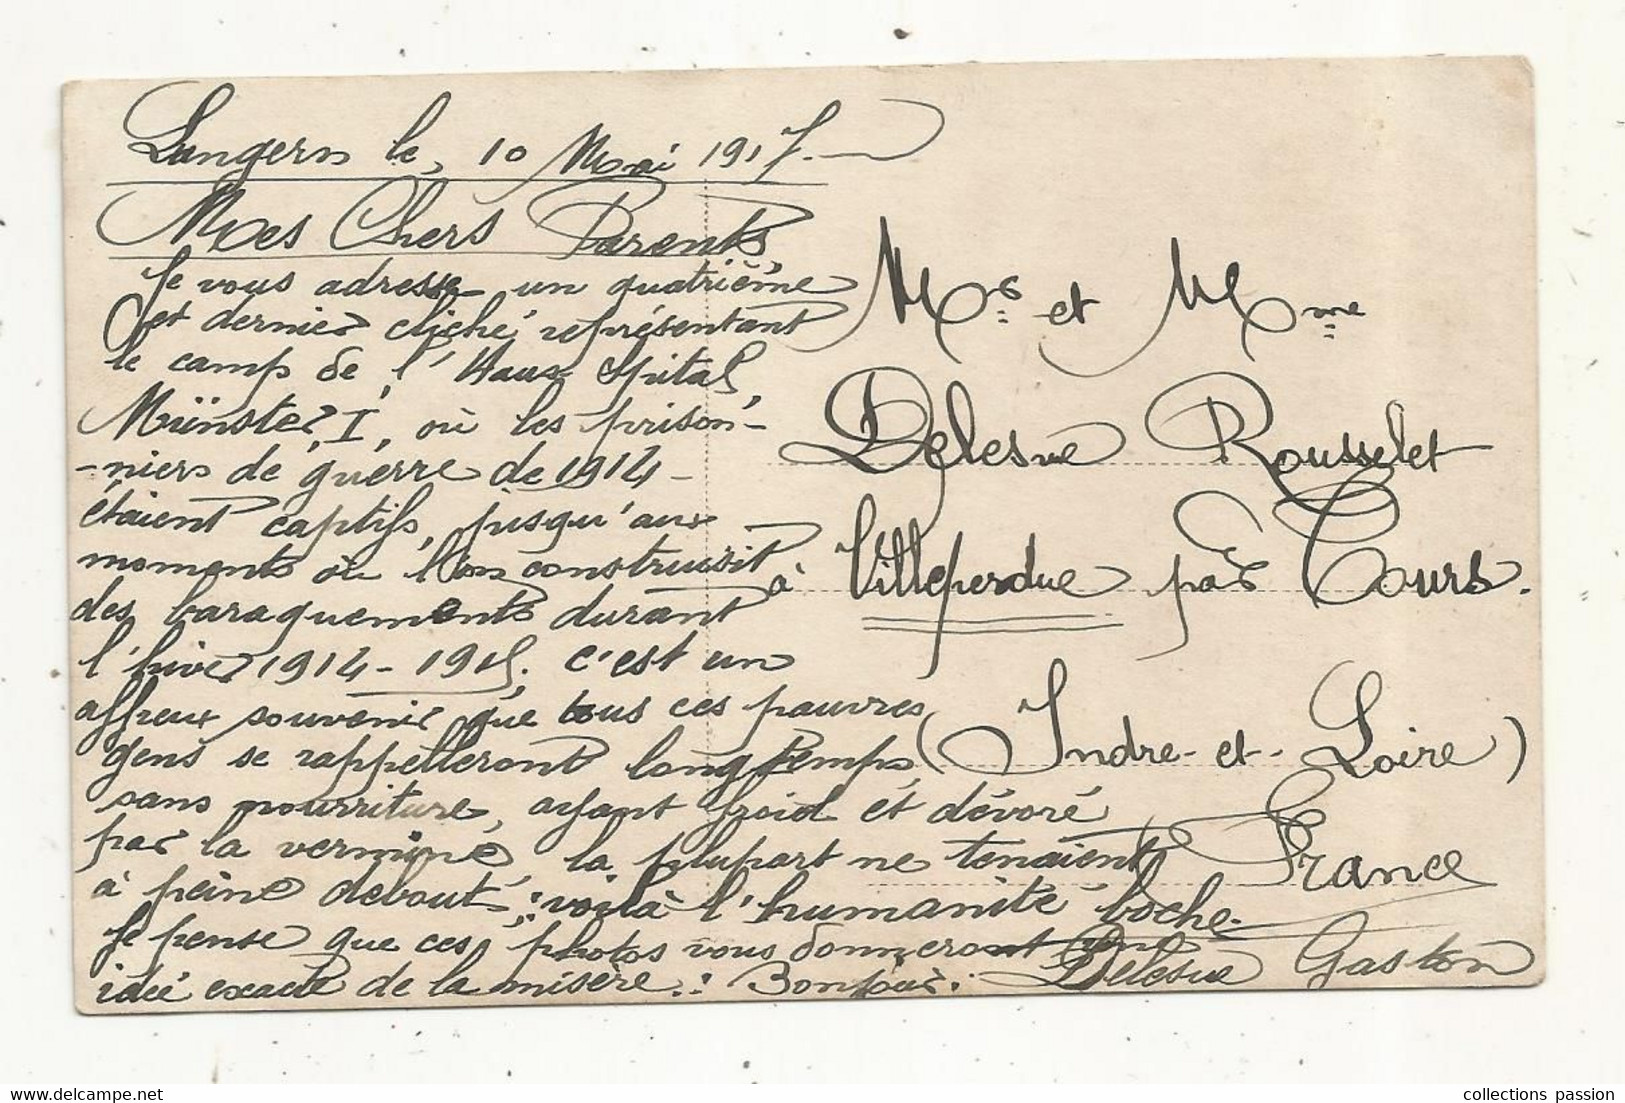 Langern le, 10 Mai 1917.
Mes Chers Parents,
Je vous adresse un quatrième
et dernier cliché représentant
le camp de l'Haus Spital,
Münster I, où les prison-
-niers de guerre de 1914
étaient captifs, jusqu'aux
moments où l'on construisit
des baraquements durant
l'hiver 1914-1915. c'est un
affreux souvenir que tous ces pauvres
gens se rappelleront longtemps,
sans nourriture, ayant froid et dévoré
par la vermine, la plupart ne tenaient
à peine debout; voilà l'humanité boche.
Je pense que ces photos vous donneront une
idée exacte de la misère. : Bonjour. Delesve Gaston
Mr. et Mme
Delesve Rousselet
à Villeperdue par Tours.
(Indre-et-Loire)
France
collections passion